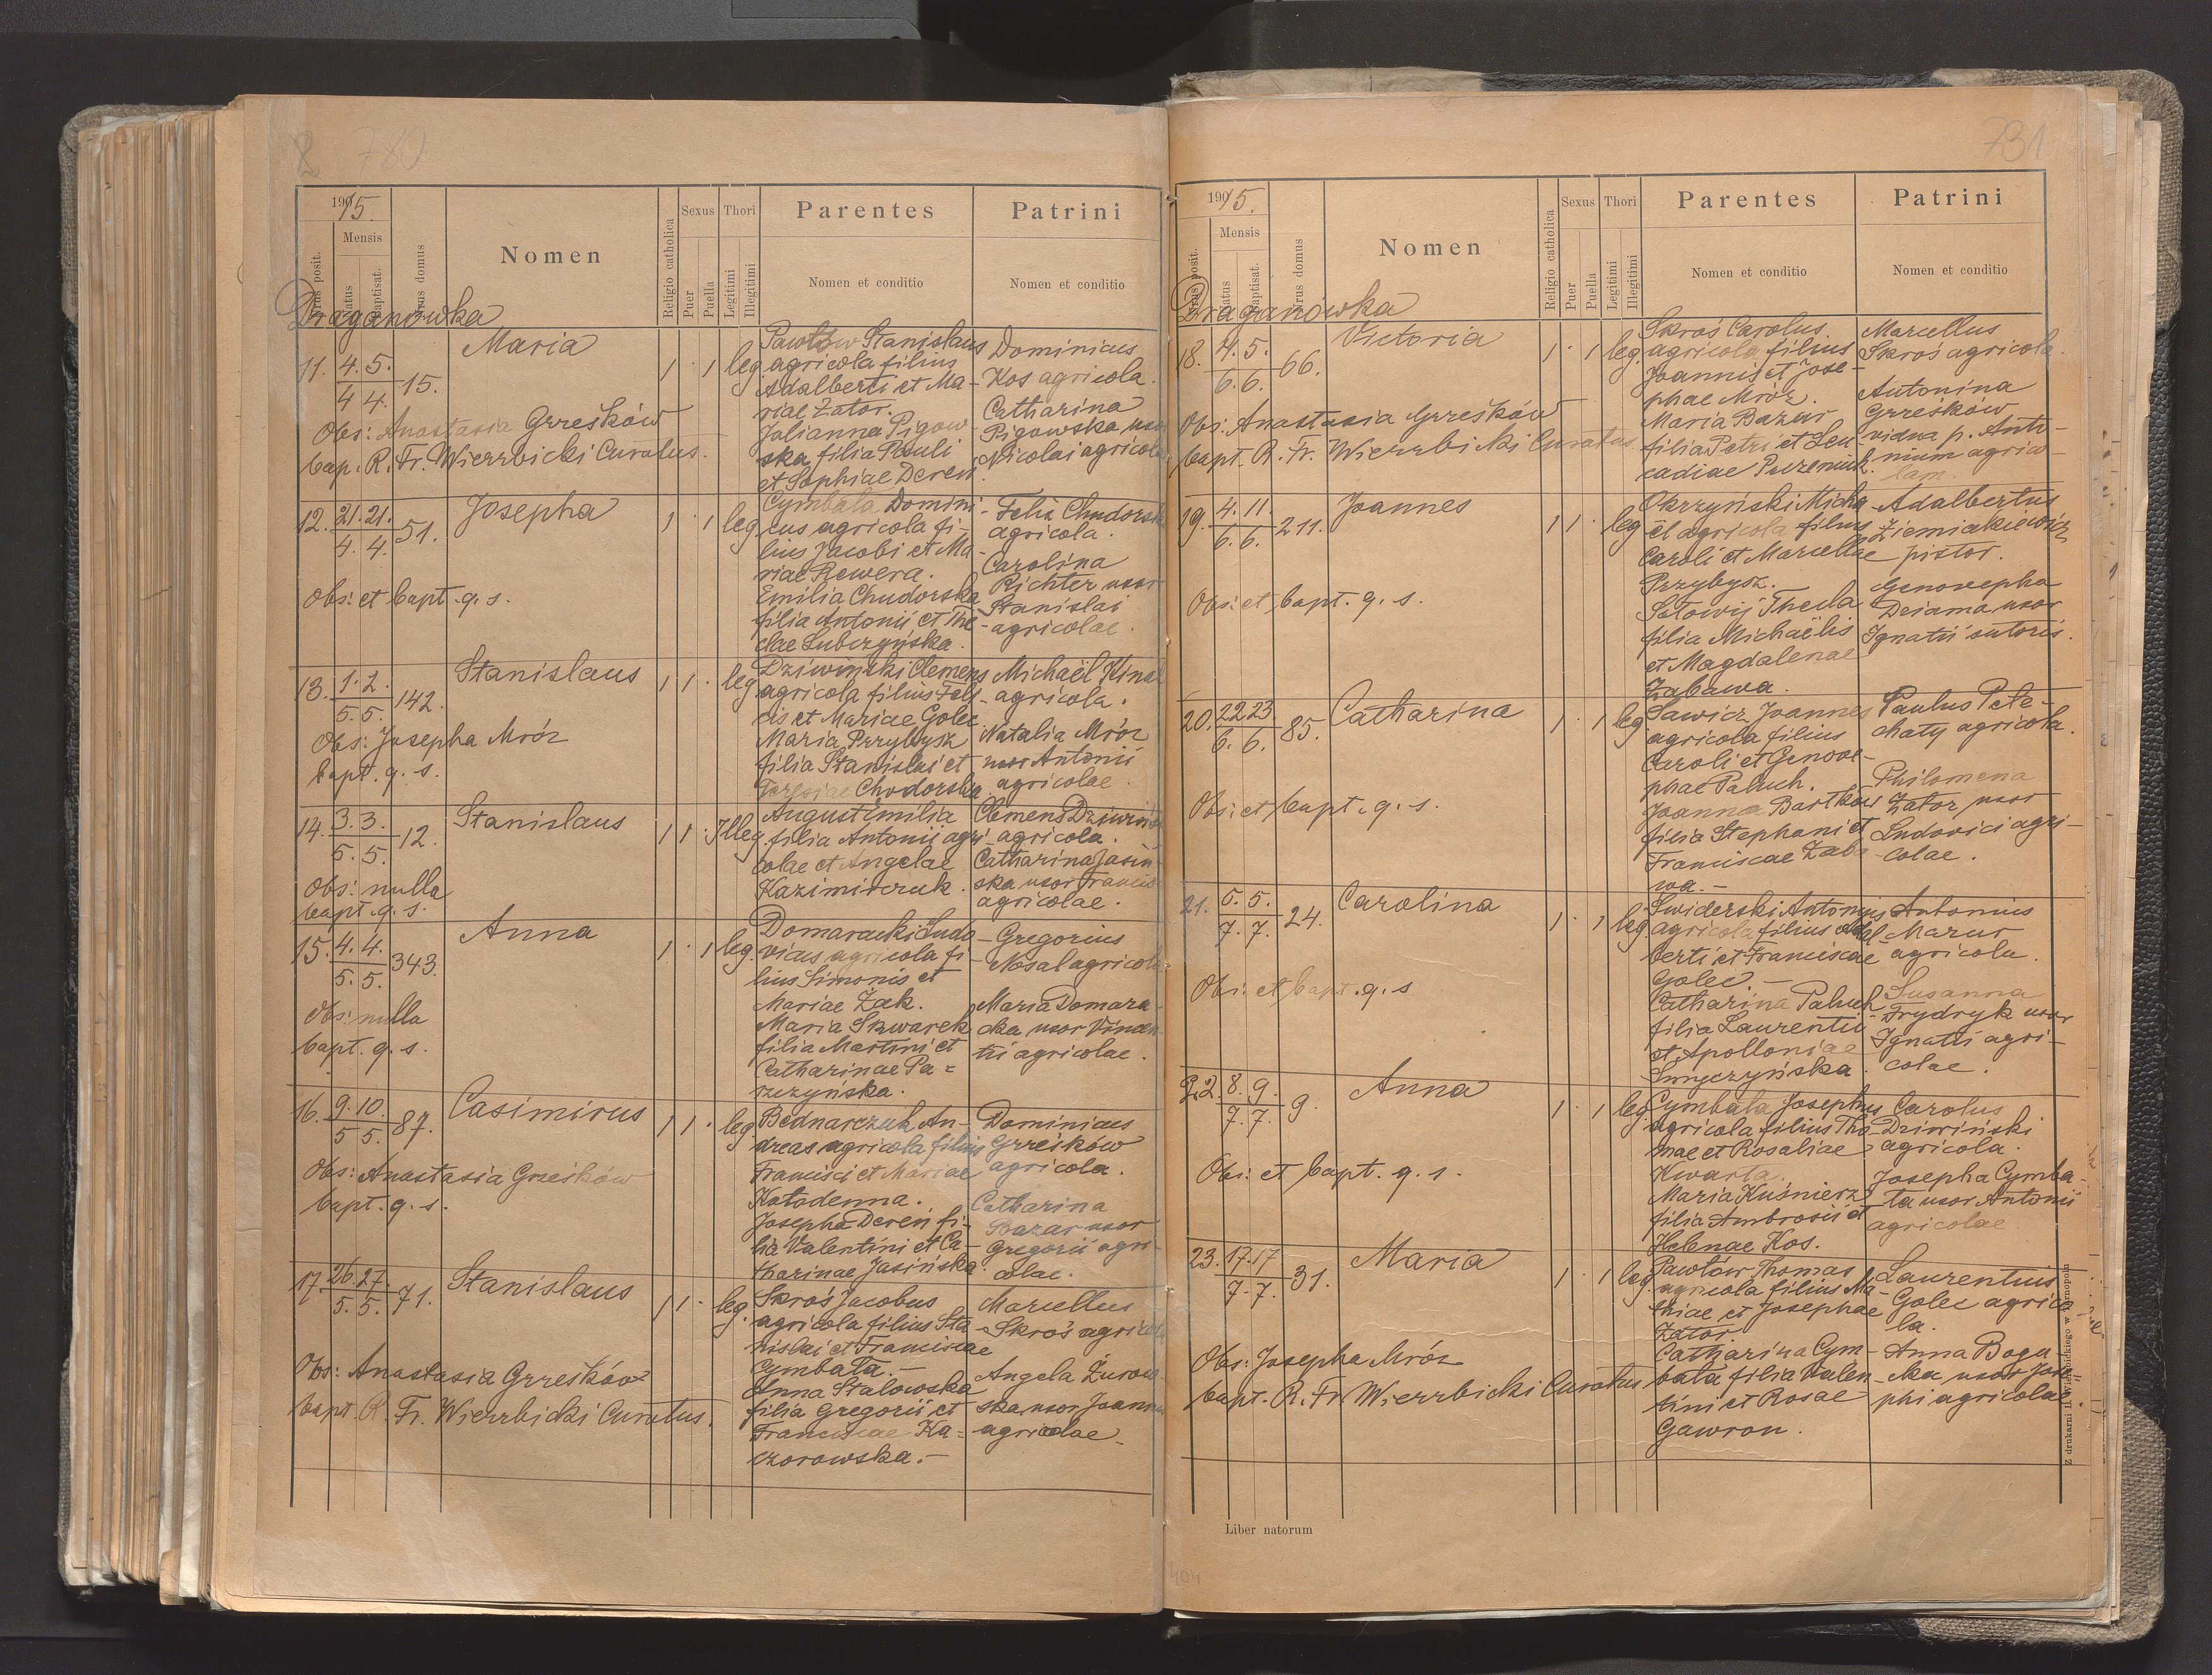 780
1915.
Nrus posit.
Mensis
Natus
Baptisat.
Nrus domus
Nomen
Religio catholica
Sexus
Puer
Puella
Thori
Legitimi
Illegitimi
Parentes
Nomen et conditio
Patrini
Nomen et conditio
Draganówka
11. 4. 5. 15. Maria 1 1 leg
4 4.
Obs: Anastasia Grześków
bap. R. Fr. Wierzbicki Curatus.
Pawłów Stanislaus
agricola filius
Adalberti et Ma-
riae Zator.
Julianna Pigow-
ska filia Pauli
et Sophiae Deren.
Dominicus
Kos agricola.
Catharina
Pigowska uxor
Nicolai agricolae
12. 21. 21. 51. Josepha 1 1 leg
4. 4.
Obs: et bapt. q. s.
Cymbała Domini-
cus agricola fi-
lius Jacobi et Ma-
riae Rewera.
Emilia Chudorska
filia Antonii et The-
clae Lubczyńska.
Felix Chudorski
agricola.
Carolina
Richter uxor
Stanislai
agricolae.
13. 1. 2. 142. Stanislaus 1 1 leg
5. 5.
Obs: Josepha Mróz
bapt. q. s.
Dziwiński Clemens
agricola filius Feli-
cis et Mariae Golec.
Maria Przybysz
filia Stanislai et
Teresiae Chodorska.
Michaël Kinal
agricola.
Natalia Mróz
uxor Antonii
agricolae.
14. 3. 3. 12. Stanislaus 1 1 Illeg.
5. 5.
Obs: nulla
bapt. q. s.
August Emilia
filia Antonii agri-
colae et Angelae
Kazimirczuk.
Clemens Dziwiński
agricola.
Catharina Jasiń-
ska uxor Francisci
agricolae.
15. 4. 4. 343. Anna 1 1 leg.
5. 5.
Obs: nulla
bapt. q. s.
Domaracki Ludo-
vicus agricola fi-
lius Simonis et
Mariae Żak.
Maria Skwarek
filia Martini et
Catharinae Pa-
rzczyńska.
Gregorius
Nosal agricola
Maria Domara-
cka uxor Vincen-
tii agricolae.
16. 9. 10. 87. Casimirus 1 1 leg
5 5.
Obs: Anastasia Grześków
bapt. q. s.
Bednarczuk An-
dreas agricola filius
Francisci et Mariae
Kołodenna.
Josepha Dereń fi-
lia Valentini et Ca-
tharinae Jasińska.
Dominicus
Grześków
agricola.
Catharina
Bazar uxor
Gregorii agri-
colae.
17. 26. 27. 71. Stanislaus 1 1 leg.
5. 5.
Obs: Anastasia Grześków
bapt. R. Fr. Wierzbicki Curatus.
Skroś Jacobus
agricola filius Sta-
nislai et Franciscae
Cymbała.-
Anna Stalowska
filia Gregorii et
Franciscae Ka-
czorowska.-
Marcellus
Skroś agricola
Angela Żurow-
ska uxor Joannis
agricolae
731
1915.
Nrus posit.
Mensis
Natus
Baptisat.
Nrus domus
Nomen
Religio catholica
Sexus
Puer
Puella
Thori
Legitimi
Illegitimi
Parentes
Nomen et conditio
Patrini
Nomen et conditio
Draganówka
18. 4. 5. 66. Victoria 1 1 leg.
6. 6.
Obs: Anastasia Grześków
bapt. R. Fr. Wierzbicki Curatus
Skroś Carolus
agricola filius
Joannis et Jose-
phae Mróz.
Maria Bazar
filia Petri et Leu-
cadiae Puzeniuk.
Marcellus
Skroś agricola.
Antonina
Grześków
vidua p. Anto-
nium agrico-
lam.
19. 4. 11. 211. Joannes 1 1 leg
6. 6.
Obs: et bapt. q. s.
Okrzyński Micha-
ël agricola filius
Caroli et Marcellae
Przybysz.
Sołowij Thecla
filia Michaëlis
et Magdalenae
Zabawa.
Adalbertus
Ziemiakiewicz
pistor.
Genovepha
Dziama uxor
Ignatii sutoris.
20. 22 23 85. Catharina 1 1 leg
6. 6.
Obs: et bapt. q. s.
Sawicz Joannes
agricola filius
Caroli et Genove-
phae Paluch.
Joanna Bartków
filia Stephani et
Franciscae Zaba-
wa.-
Paulus Pele-
chaty agricola.
Philomena
Zator uxor
Ludovici agri-
colae.
21. 5. 5. 24. Carolina 1 1 leg
7. 7.
Obs: et bapt. q. s
Świderski Antonius
agricola filius Adal-
berti et Franciscae
Golec.-
Catharina Paluch
filia Laurentii
et Apolloniae
Smyczyńska.
Antonius
Mazur
agricola.
Susanna
Frydryk uxor
Ignatii agri-
colae.
22. 8. 9. 9. Anna 1 1 leg
7. 7.
Obs: et bapt. q. s.
Cymbała Josephus
agricola filius Tho-
mae et Rosaliae
Kwarta.
Maria Kuśnierz
filia Ambrosii et
Helenae Kos.
Carolus
Dziwiński
agricola.
Josepha Cymba-
ła uxor Antonii
agricolae
23. 17. 17 31. Maria 1 1 leg.
7. 7.
Obs: Josepha Mróz
bapt. R. Fr. Wierzbicki Curatus
Pawłów Thomas
agricola filius Ma-
thiae et Josephae
Zator.
Catharina Cym-
bała filia Valen-
tini et Rosae
Gawron.
Laurentius
Golec agrico-
la.
Anna Bogu-
cka uxor Jose-
phi agricolae.
Liber natorum
Z drukarni H. Widrickiego w Tarnopolu
404